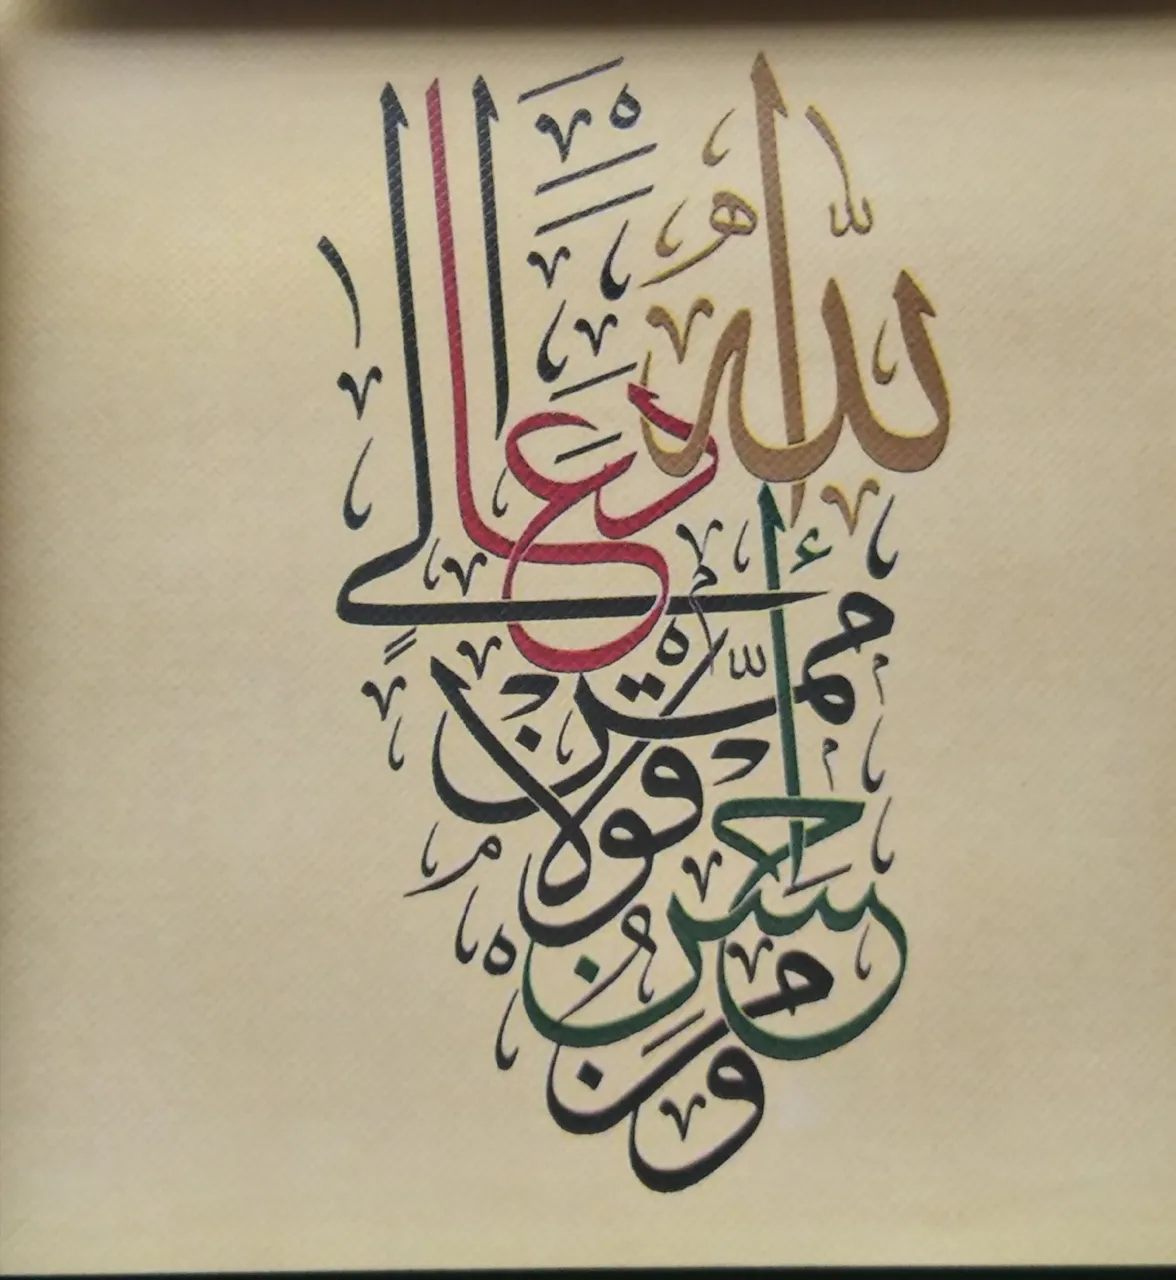 وَمَنْ أَحْسَنُ قَوْلًا مِمَّنْ دَعَا إِلَى اللَّهِ